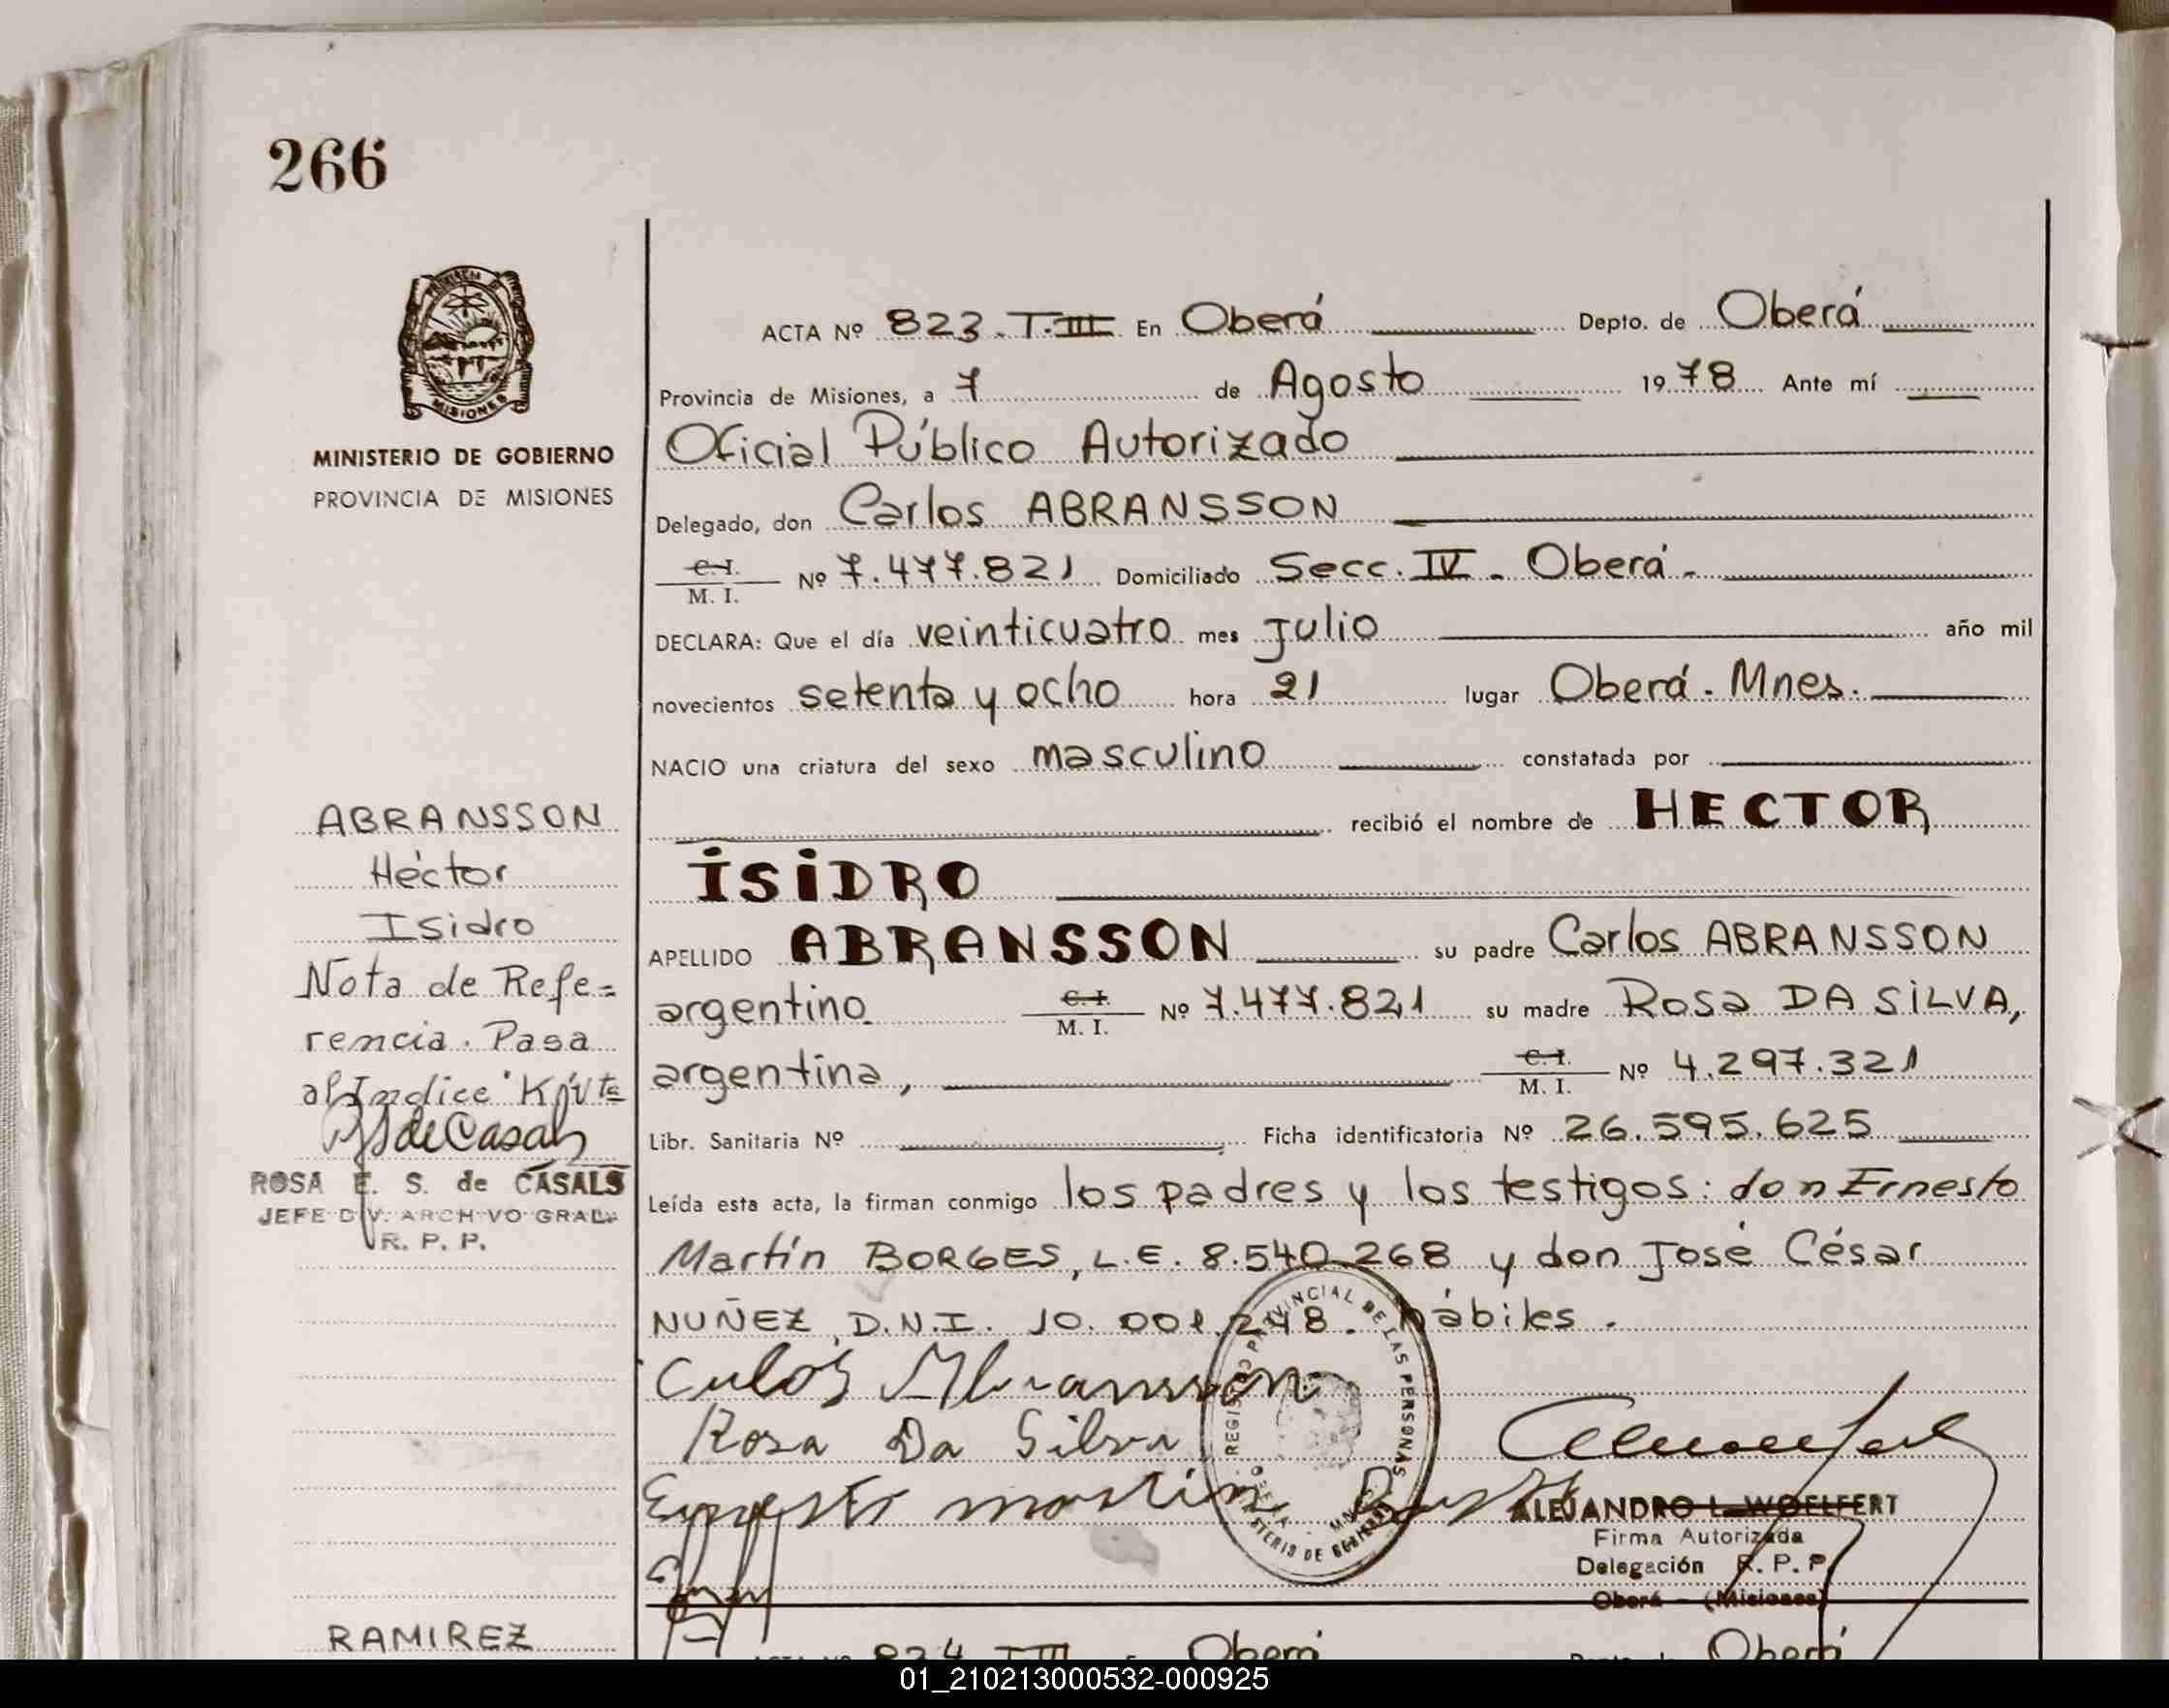 266
PROVINCIA DE
MISIONES
MINISTERIO DE GOBIERNO
PROVINCIA DE MISIONES
ACTA Nº 823 - T. III En Oberá Depto. de Oberá
Provincia de Misiones, a 7 de Agosto 1978 Ante mí
Oficial Público Autorizado
Delegado, don Carlos ABRANSSON
C.I.
M. I. Nº 7.477.821 Domiciliado Secc. IV - Oberá -
DECLARA: Que el día veinticuatro mes Julio año mil
novecientos setenta y ocho hora 21 lugar Oberá. Mnes.
NACIO una criatura del sexo masculino constatada por
recibió el nombre de HECTOR
ISIDRO
APELLIDO ABRANSSON su padre Carlos ABRANSSON
argentino C.I.
M. I. Nº 7.477.821 su madre Rosa DA SILVA,
argentina, C.I.
M. I. Nº 4.297.321
Libr. Sanitaria Nº Ficha identificatoria Nº 26.595.625
Leída esta acta, la firman conmigo los padres y los testigos: don Ernesto
Martín BORGES, L.E. 8.540.268 y don José César
NUÑEZ, D.N.I. 10.001.248. hábiles.
Carlos Abransson
Rosa Da Silva
Ernesto Martin
REGISTRO PROVINCIAL DE LAS PERSONAS
MINISTERIO DE GOBIERNO
OBERA - MNES
ALEJANDRO L. WOELFERT
Firma Autorizada
Delegación R. P. P.
Oberá - (Misiones)
ABRANSSON
Héctor
Isidro
Nota de Refe=
rencia. Pasa
al Indice
de Casals
ROSA E. S. de CASALS
JEFE DIV. ARCHIVO GRAL.
R. P. P.
RAMIREZ
ACTA Nº 824 T III En Oberá Depto. de Oberá
01_210213000532-000925